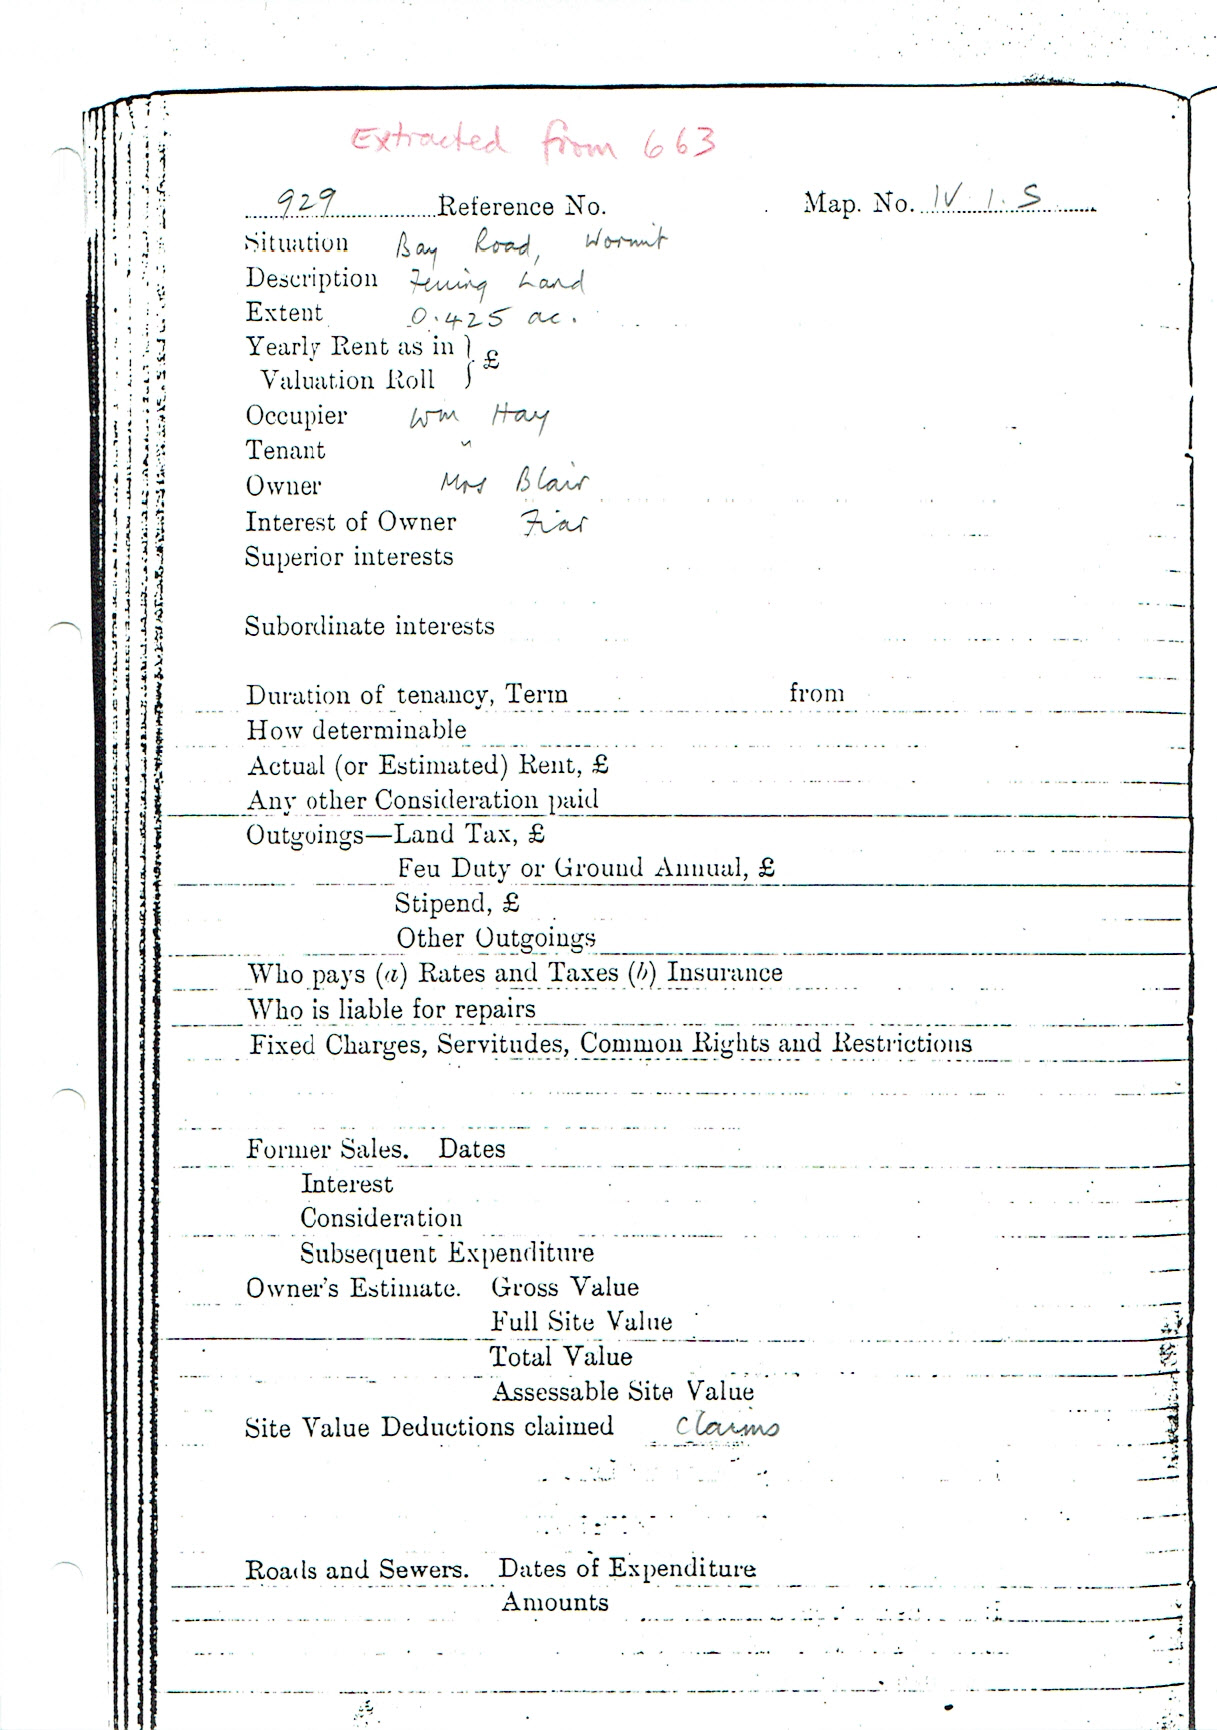 Extracted from 663
929 Reference No. Map. No. IV. 1. S
Situation Bay Road, Wormit
Description Feuing Land
Extent 0.425 ac.
Yearly Rent as in } £
Valuation Roll
Occupier Wm Hay
Tenant "
Owner Mrs Blair
Interest of Owner Fiar
Superior interests
Subordinate interests
Duration of tenancy, Term from
How determinable
Actual (or Estimated) Rent, £
Any other Consideration paid
Outgoings—Land Tax, £
Feu Duty or Ground Annual, £
Stipend, £
Other Outgoings
Who pays (a) Rates and Taxes (b) Insurance
Who is liable for repairs
Fixed Charges, Servitudes, Common Rights and Restrictions
Former Sales. Dates
Interest
Consideration
Subsequent Expenditure
Owner's Estimate. Gross Value
Full Site Value
Total Value
Assessable Site Value
Site Value Deductions claimed Claims
Roads and Sewers. Dates of Expenditure
Amounts